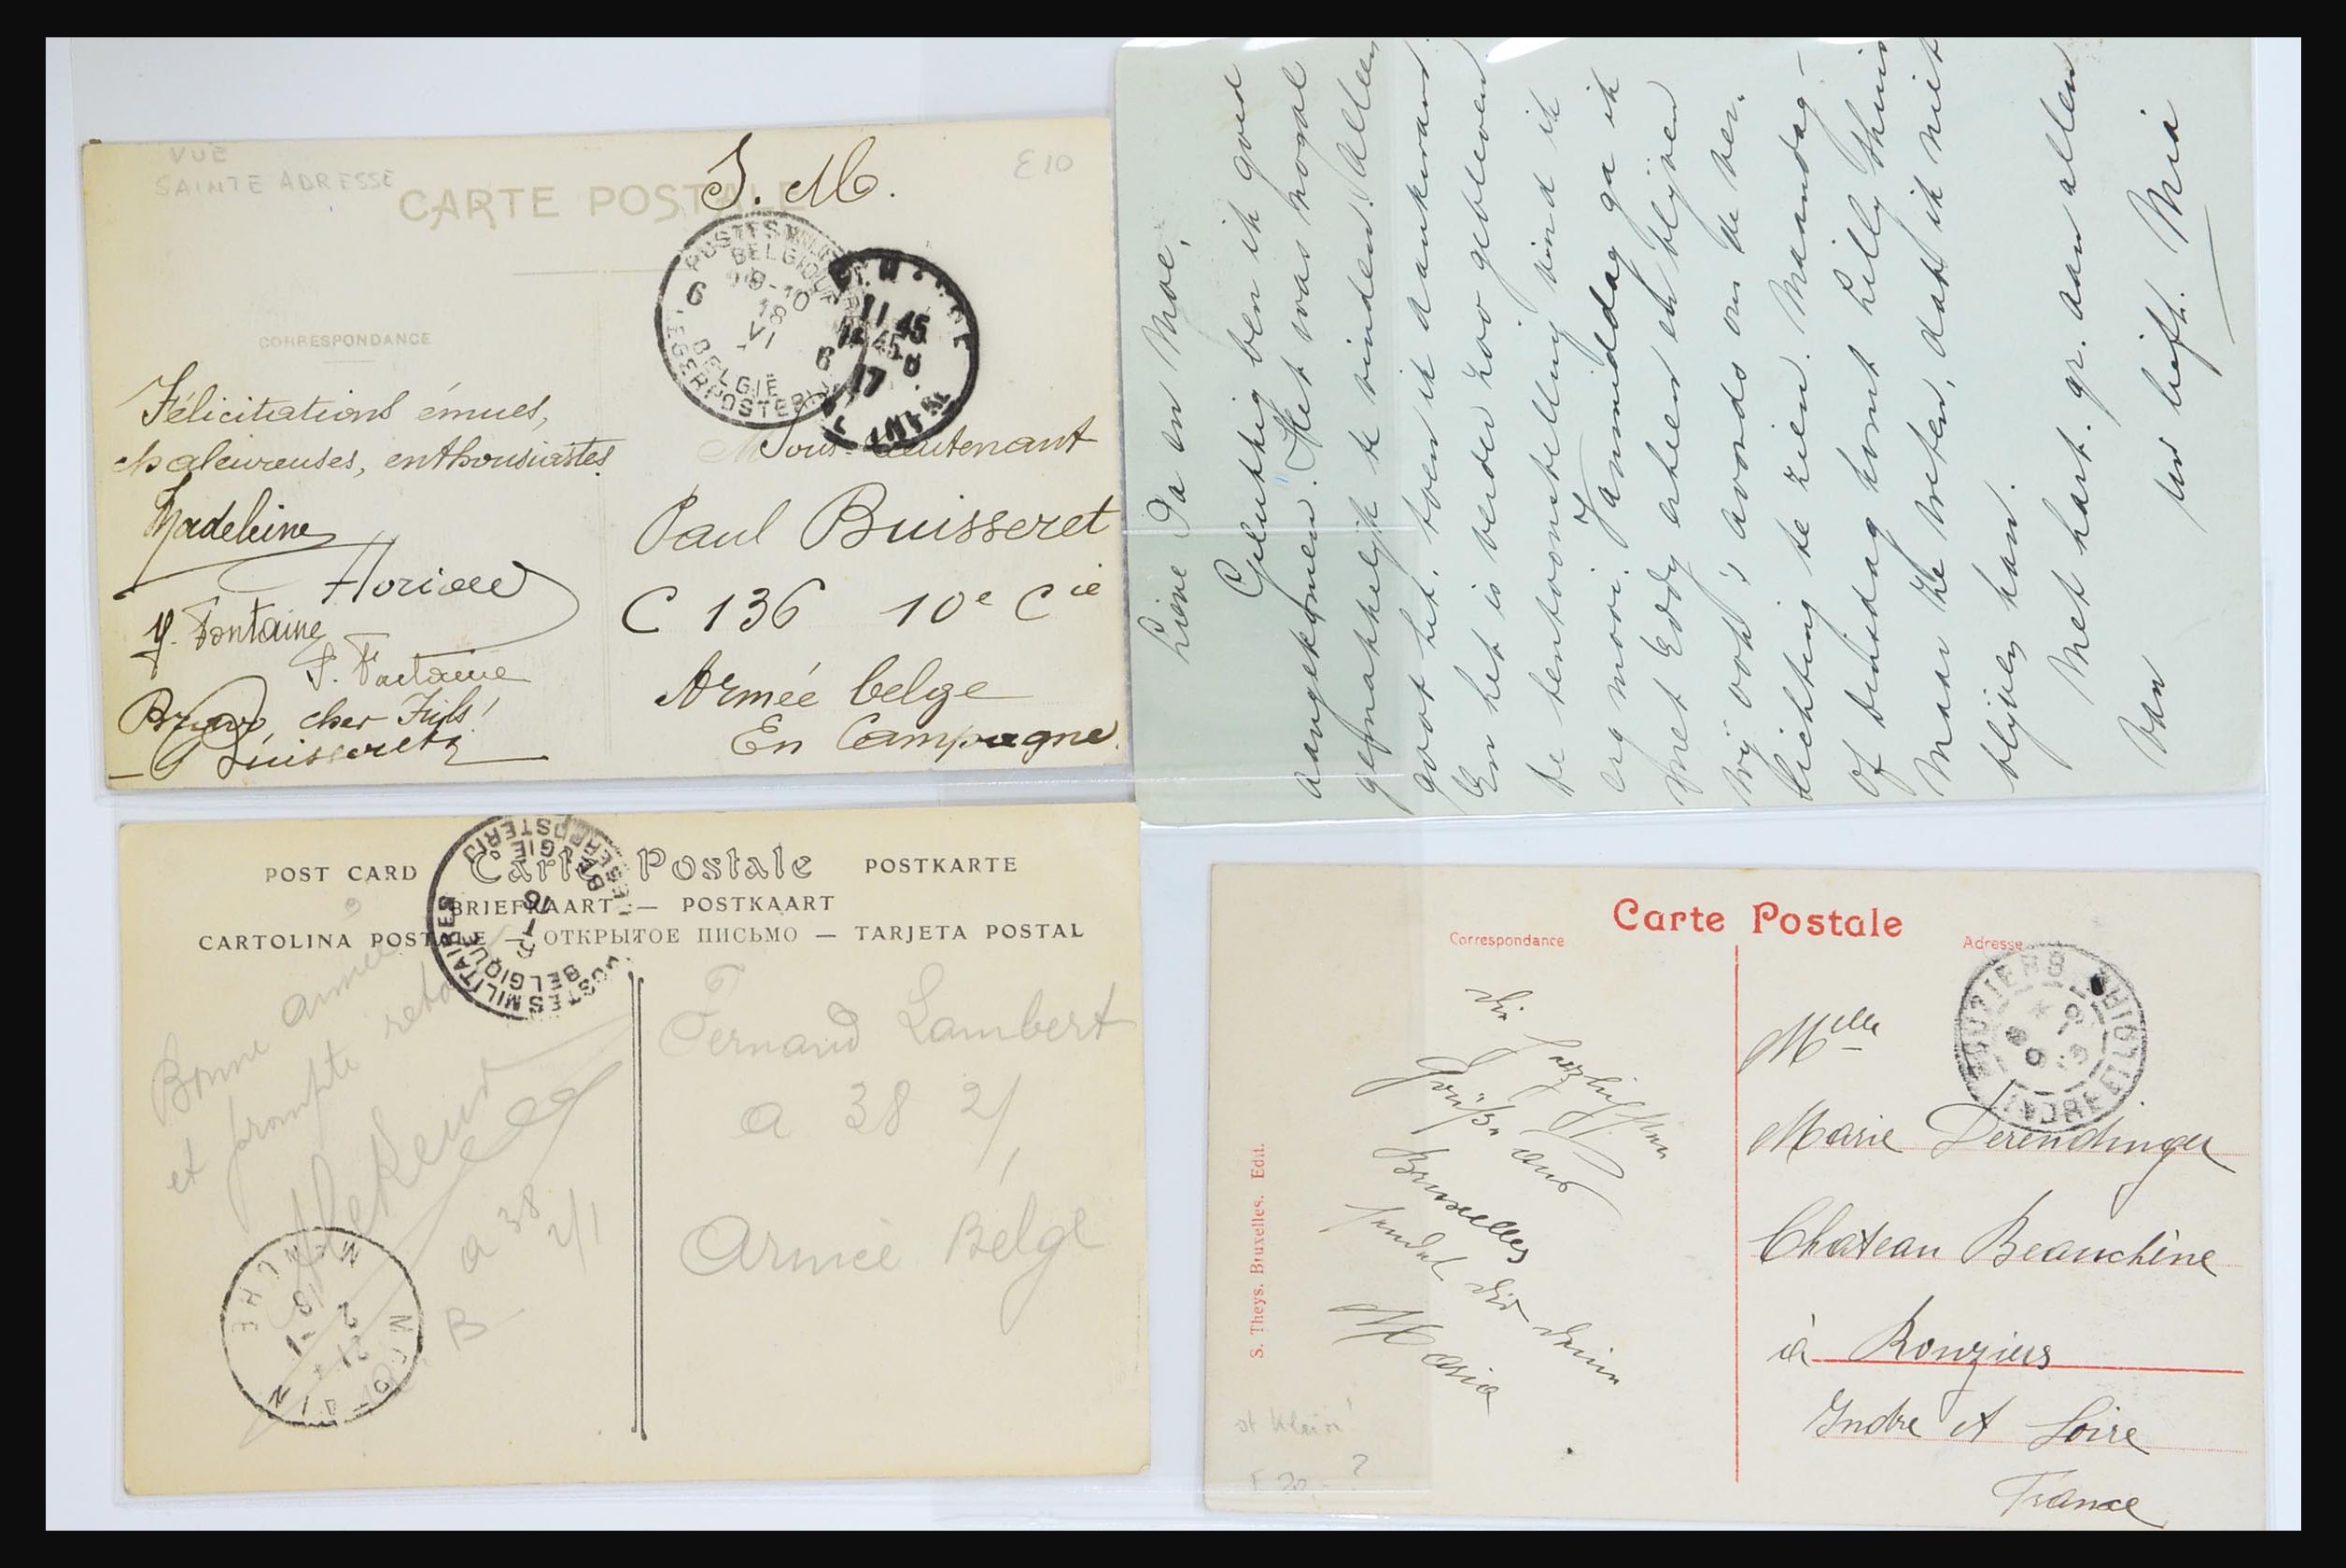 VUE
SAINTE ADRESSE
S. M.
E10
CARTE POSTALE
POSTES MILITAIRES
BELGIQUE
6
18
VI
BELGIË
LEGERPOSTERIJ
11 45
17
CORRESPONDANCE
Félicitations émues,
chaleureuses, enthousiastes
Madeleine
Y. Fontaine
Bravo, cher Fils!
Buisseret
M Sous-Lieutenant
Paul Buisseret
C 136 10e Cie
Armée belge
En Campagne.
Lieve Pa en Moe,
Gelukkig ben ik goed
aangekomen. Het was nogal
gemakkelijk te vinden. Alleen
goot het, toen ik aankwam.
En het is verder zoo gebleven
De tentoonstelling vind ik
erg mooi. Vanmiddag ga ik
met Eddy erheen en blijven
wij ook 's avonds om de ver-
lichting te zien. Maandag-
of dinsdag komt Lilly thuis
Maar ze weten, dat ik niet
blijven kan.
Met hart. gr. aan allen
van
uw liefh. Mia
POST CARD Carte Postale POSTKARTE
BRIEFKAART — POSTKAART
CARTOLINA POSTALE — ОТКРЫТОЕ ПИСЬМО — TARJETA POSTAL
POSTES MILITAIRES
BELGIQUE
BELGIË
LEGERPOSTERIJ
Bonne année
et prompte retour
a 38
2/1
B
Fernand Lambert
a 38 2/1
Armée Belge
Carte Postale
Correspondance
Adresse
die herzlichsten
Grüße aus
Bruxelles
sendet dir deine
Maria
S. Theys. Bruxelles. Edit.
Mlle
Marie Derendinger
Chateau Beauchêne
à Rouziers
Indre et Loire
France
ROUZIERS
INDRE ET LOIRE